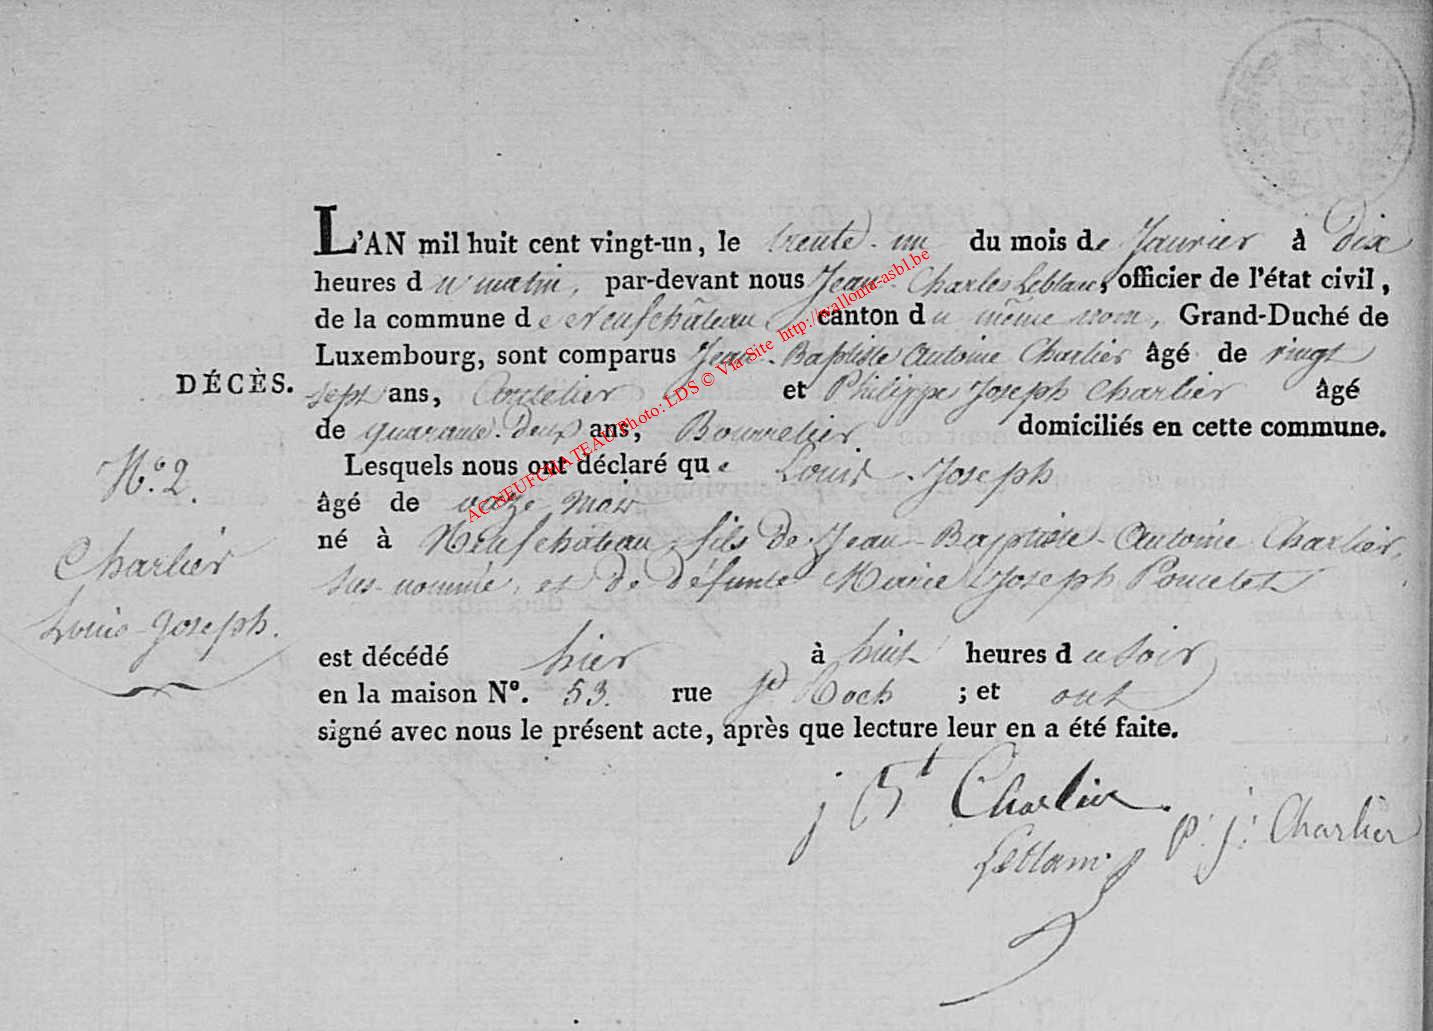 L'AN mil huit cent vingt-un, le trente-un du mois de Janvier à Dix
heures du matin, par-devant nous Jean-Charles Leblanc, officier de l'état civil,
de la commune de Neufchâteau, canton du même nom, Grand-Duché de
Luxembourg, sont comparus Jean-Baptiste Antoine Charlier âgé de vingt
sept ans, et Philippe Joseph Charlier âgé
de quarante-deux ans, Bourrelier domiciliés en cette commune.
Lesquels nous ont déclaré que Louis-Joseph
âgé de onze mois
né à Neufchâteau, fils de Jean-Baptiste-Antoine Charlier,
sus-nommé, et de défunte Marie Joseph Poncelet
est décédé hier à huit heures du soir
en la maison Nº. 53. rue St Roch ; et ont
signé avec nous le présent acte, après que lecture leur en a été faite.
DÉCÈS.
Nº. 2.
Charlier
Louis-Joseph.
j Bt Charlier
p: j: Charlier
Leblanc
ACNEUFCHATEAU Photo: LDS © Via Site http://wallonia-asbl.be